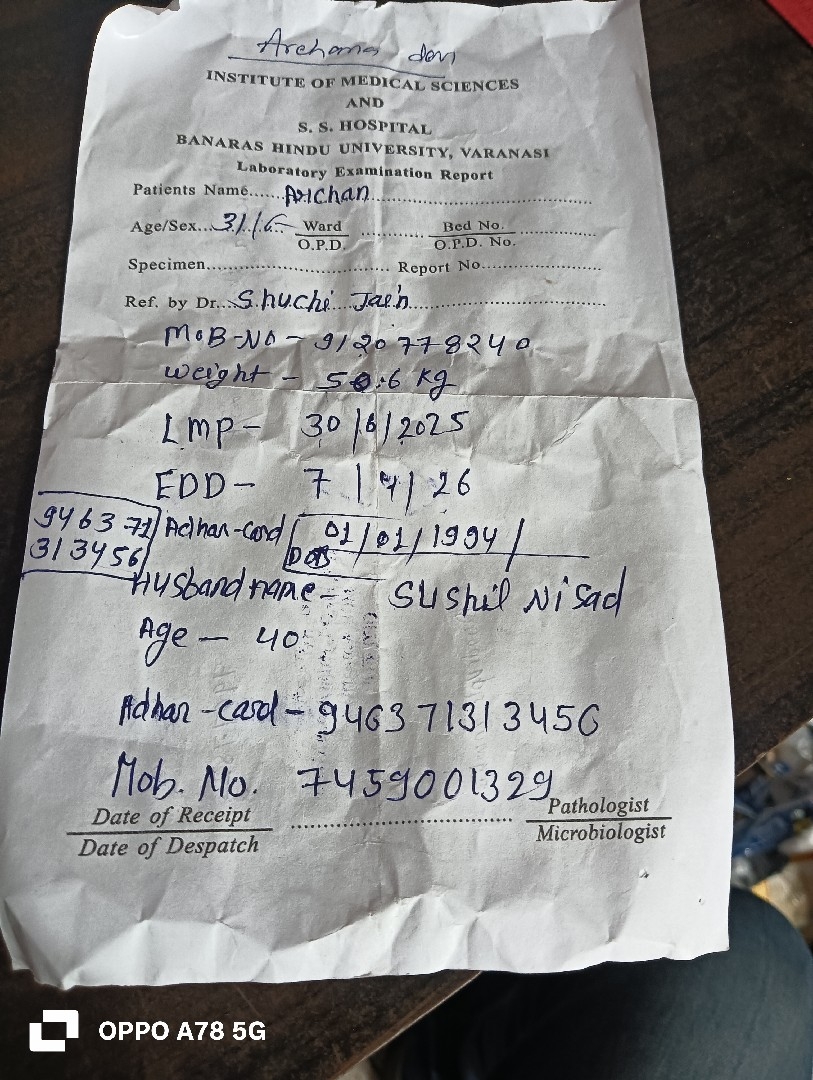 Archana devi
INSTITUTE OF MEDICAL SCIENCES
AND
S. S. HOSPITAL
BANARAS HINDU UNIVERSITY, VARANASI
Laboratory Examination Report
Patients Name......Archan..............................
Age/Sex...31/F Ward ............ Bed No. ..............
O.P.D. O.P.D. No.
Specimen................................ Report No.....................
Ref. by Dr...Shuchi Jain..............................
MOB-NO - 9120778240
Weight - 50.6 kg
LMP- 30/6/2025
EDD- 7/4/26
946371 Adhar-card 01/01/1994/
313456 DOB
Husband name - Sushil Nisad
Age - 40
Adhar-card - 946371313456
Mob. No. 7459001329
Date of Receipt .................................. Pathologist
Date of Despatch Microbiologist
OPPO A78 5G